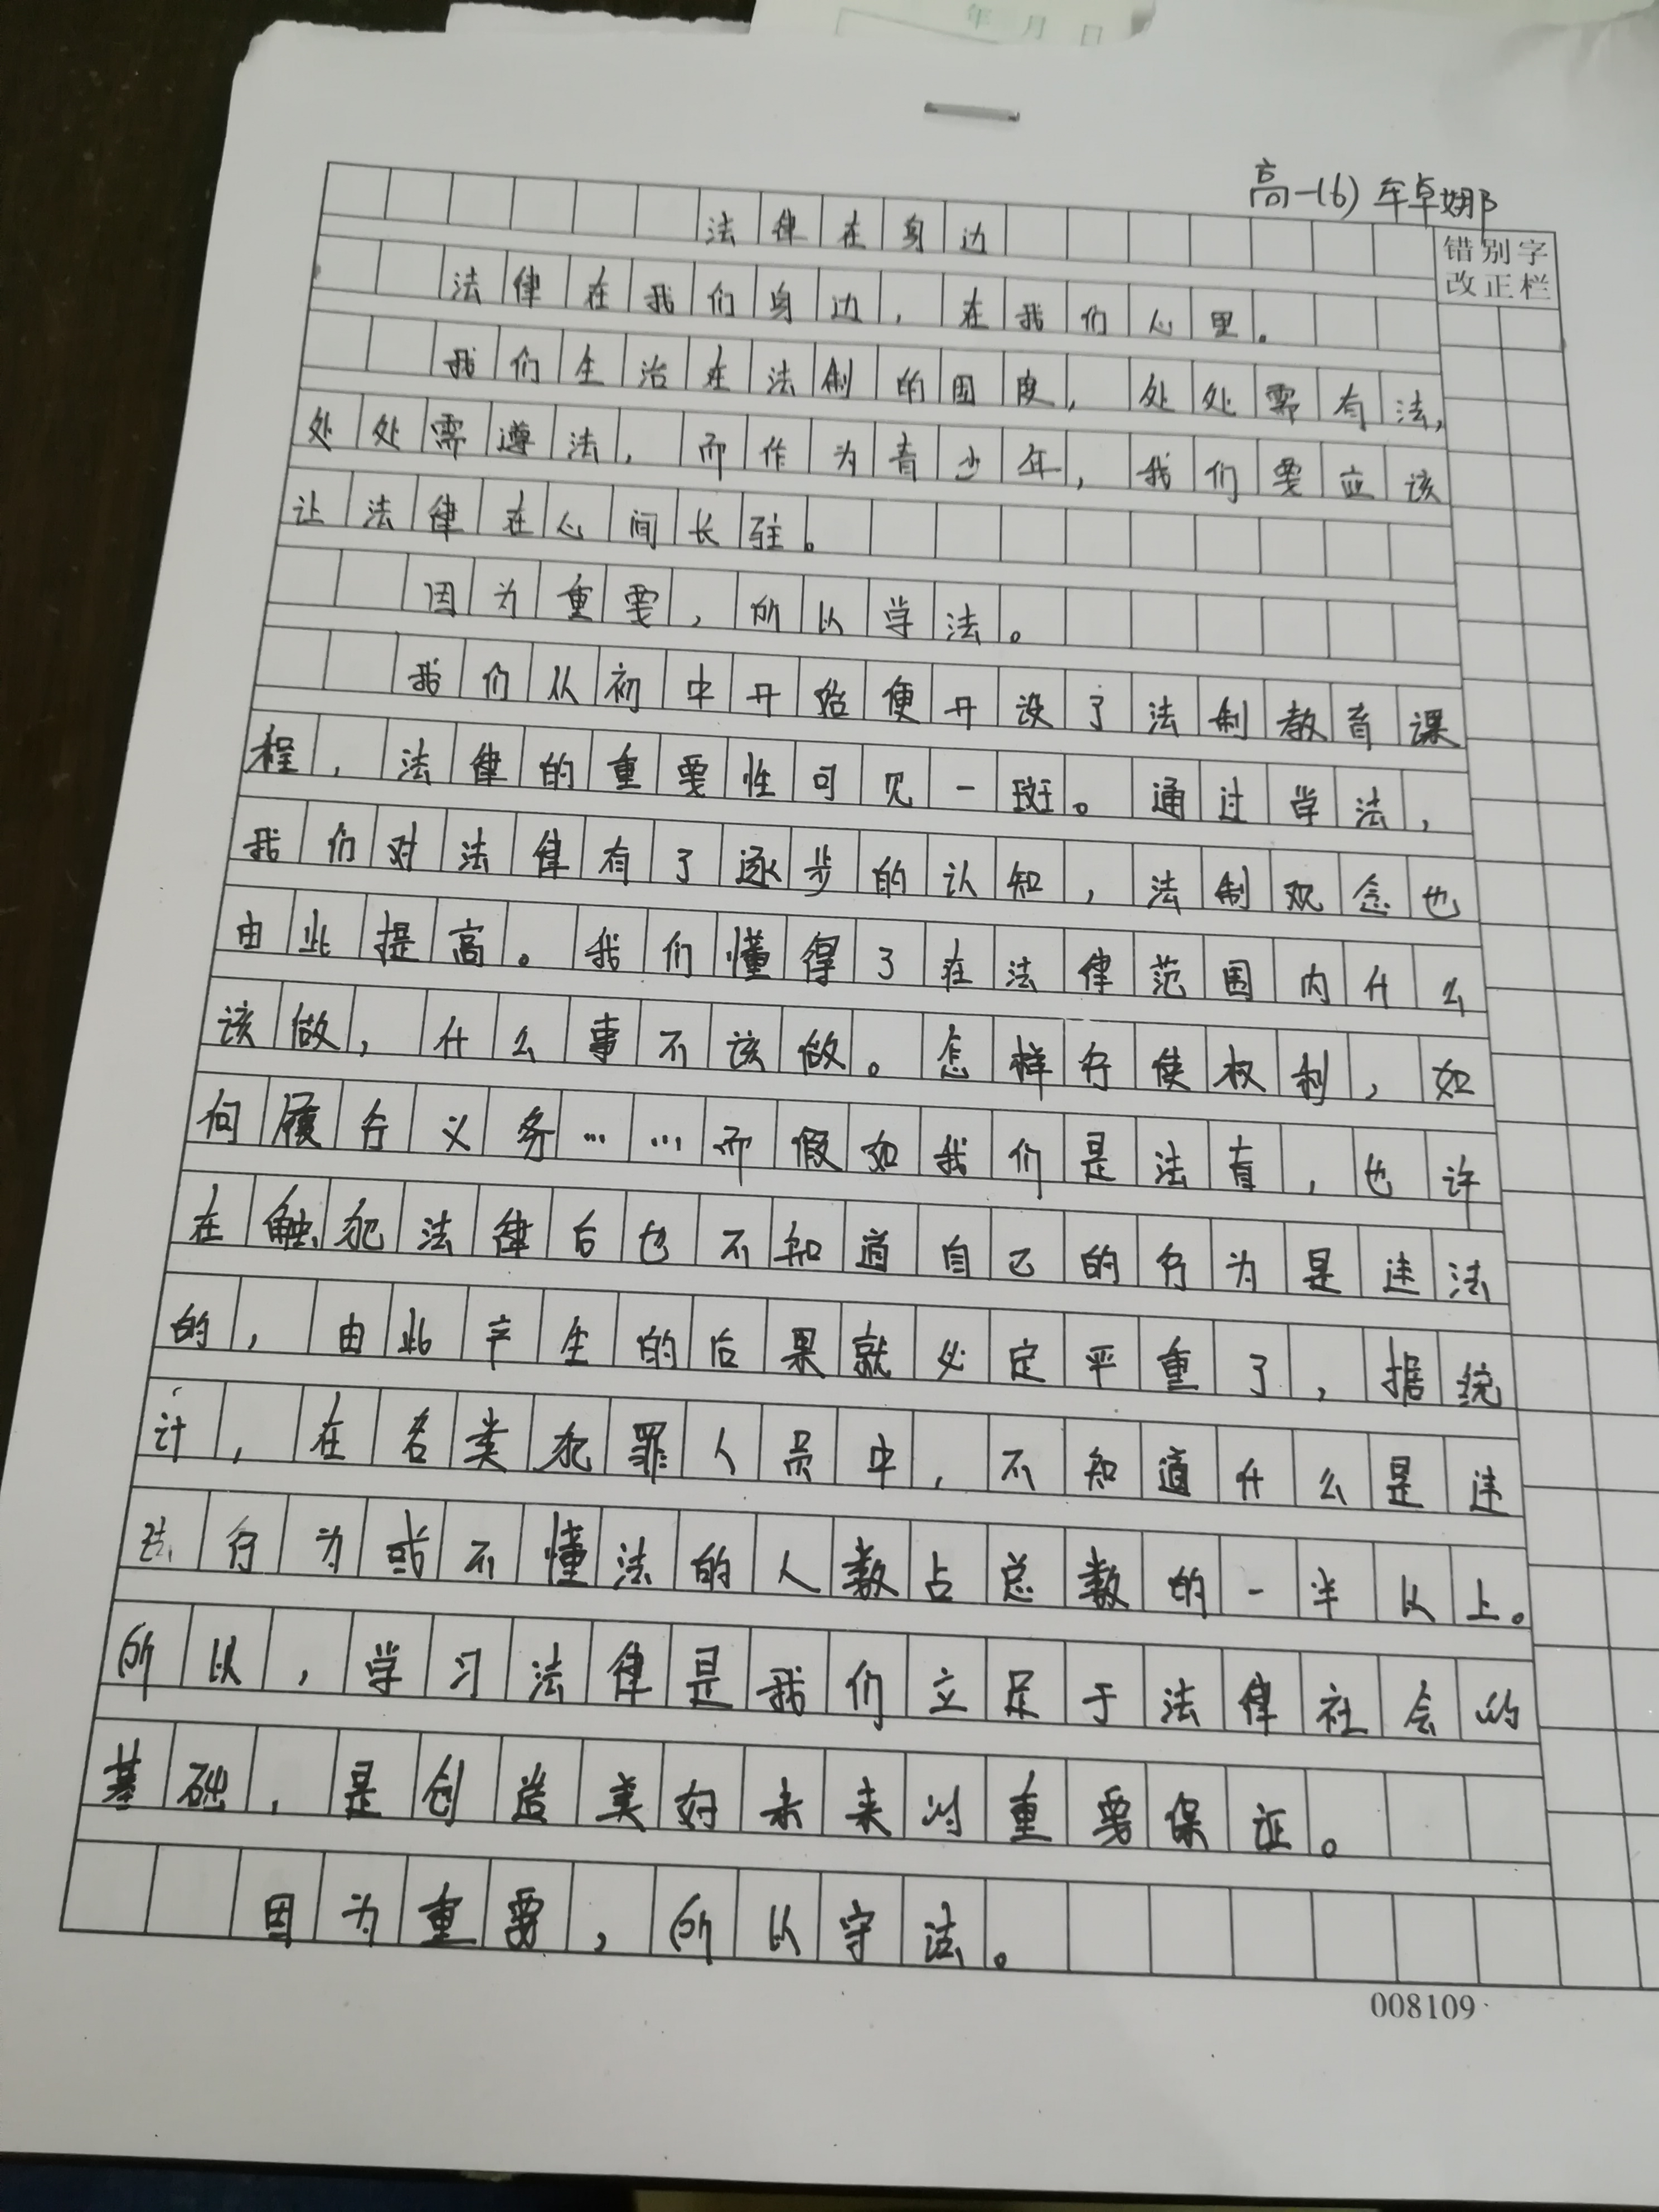 年 月 日
高一(6) 牟卓娜
法律在身边
错别字
改正栏
法律在我们身边，在我们心里。
我们生活在法制的国度，处处需有法，
处处需遵法，而作为青少年，我们要应该
让法律在心间长驻。
因为重要，所以学法。
我们从初中开始便开设了法制教育课
程，法律的重要性可见一斑。通过学法，
我们对法律有了逐步的认知，法制观念也
由此提高。我们懂得了在法律范围内什么
该做，什么事不该做。怎样行使权利，如
何履行义务……而假如我们是法盲，也许
在触犯法律后也不知道自己的行为是违法
的，由此产生的后果就必定严重了，据统
计，在各类犯罪人员中，不知道什么是违
法行为或不懂法的人数占总数的一半以上。
所以，学习法律是我们立足于法律社会的
基础，是创造美好未来的重要保证。
因为重要，所以守法。
008109